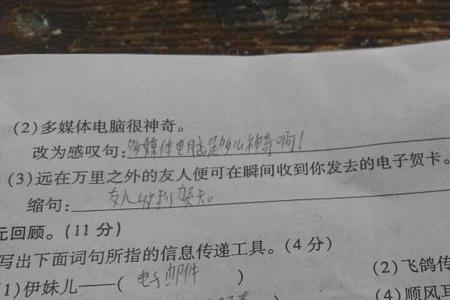 (2)多媒体电脑很神奇。
改为感叹句:多媒体电脑是多么神奇啊!
(3)远在万里之外的友人便可在瞬间收到你发去的电子贺卡。
缩句:友人收到贺卡。
元回顾。(11 分)
写出下面词句所指的信息传递工具。(4 分)
1)伊妹儿——(电子邮件) (2)飞鸽传
(4)顺风耳